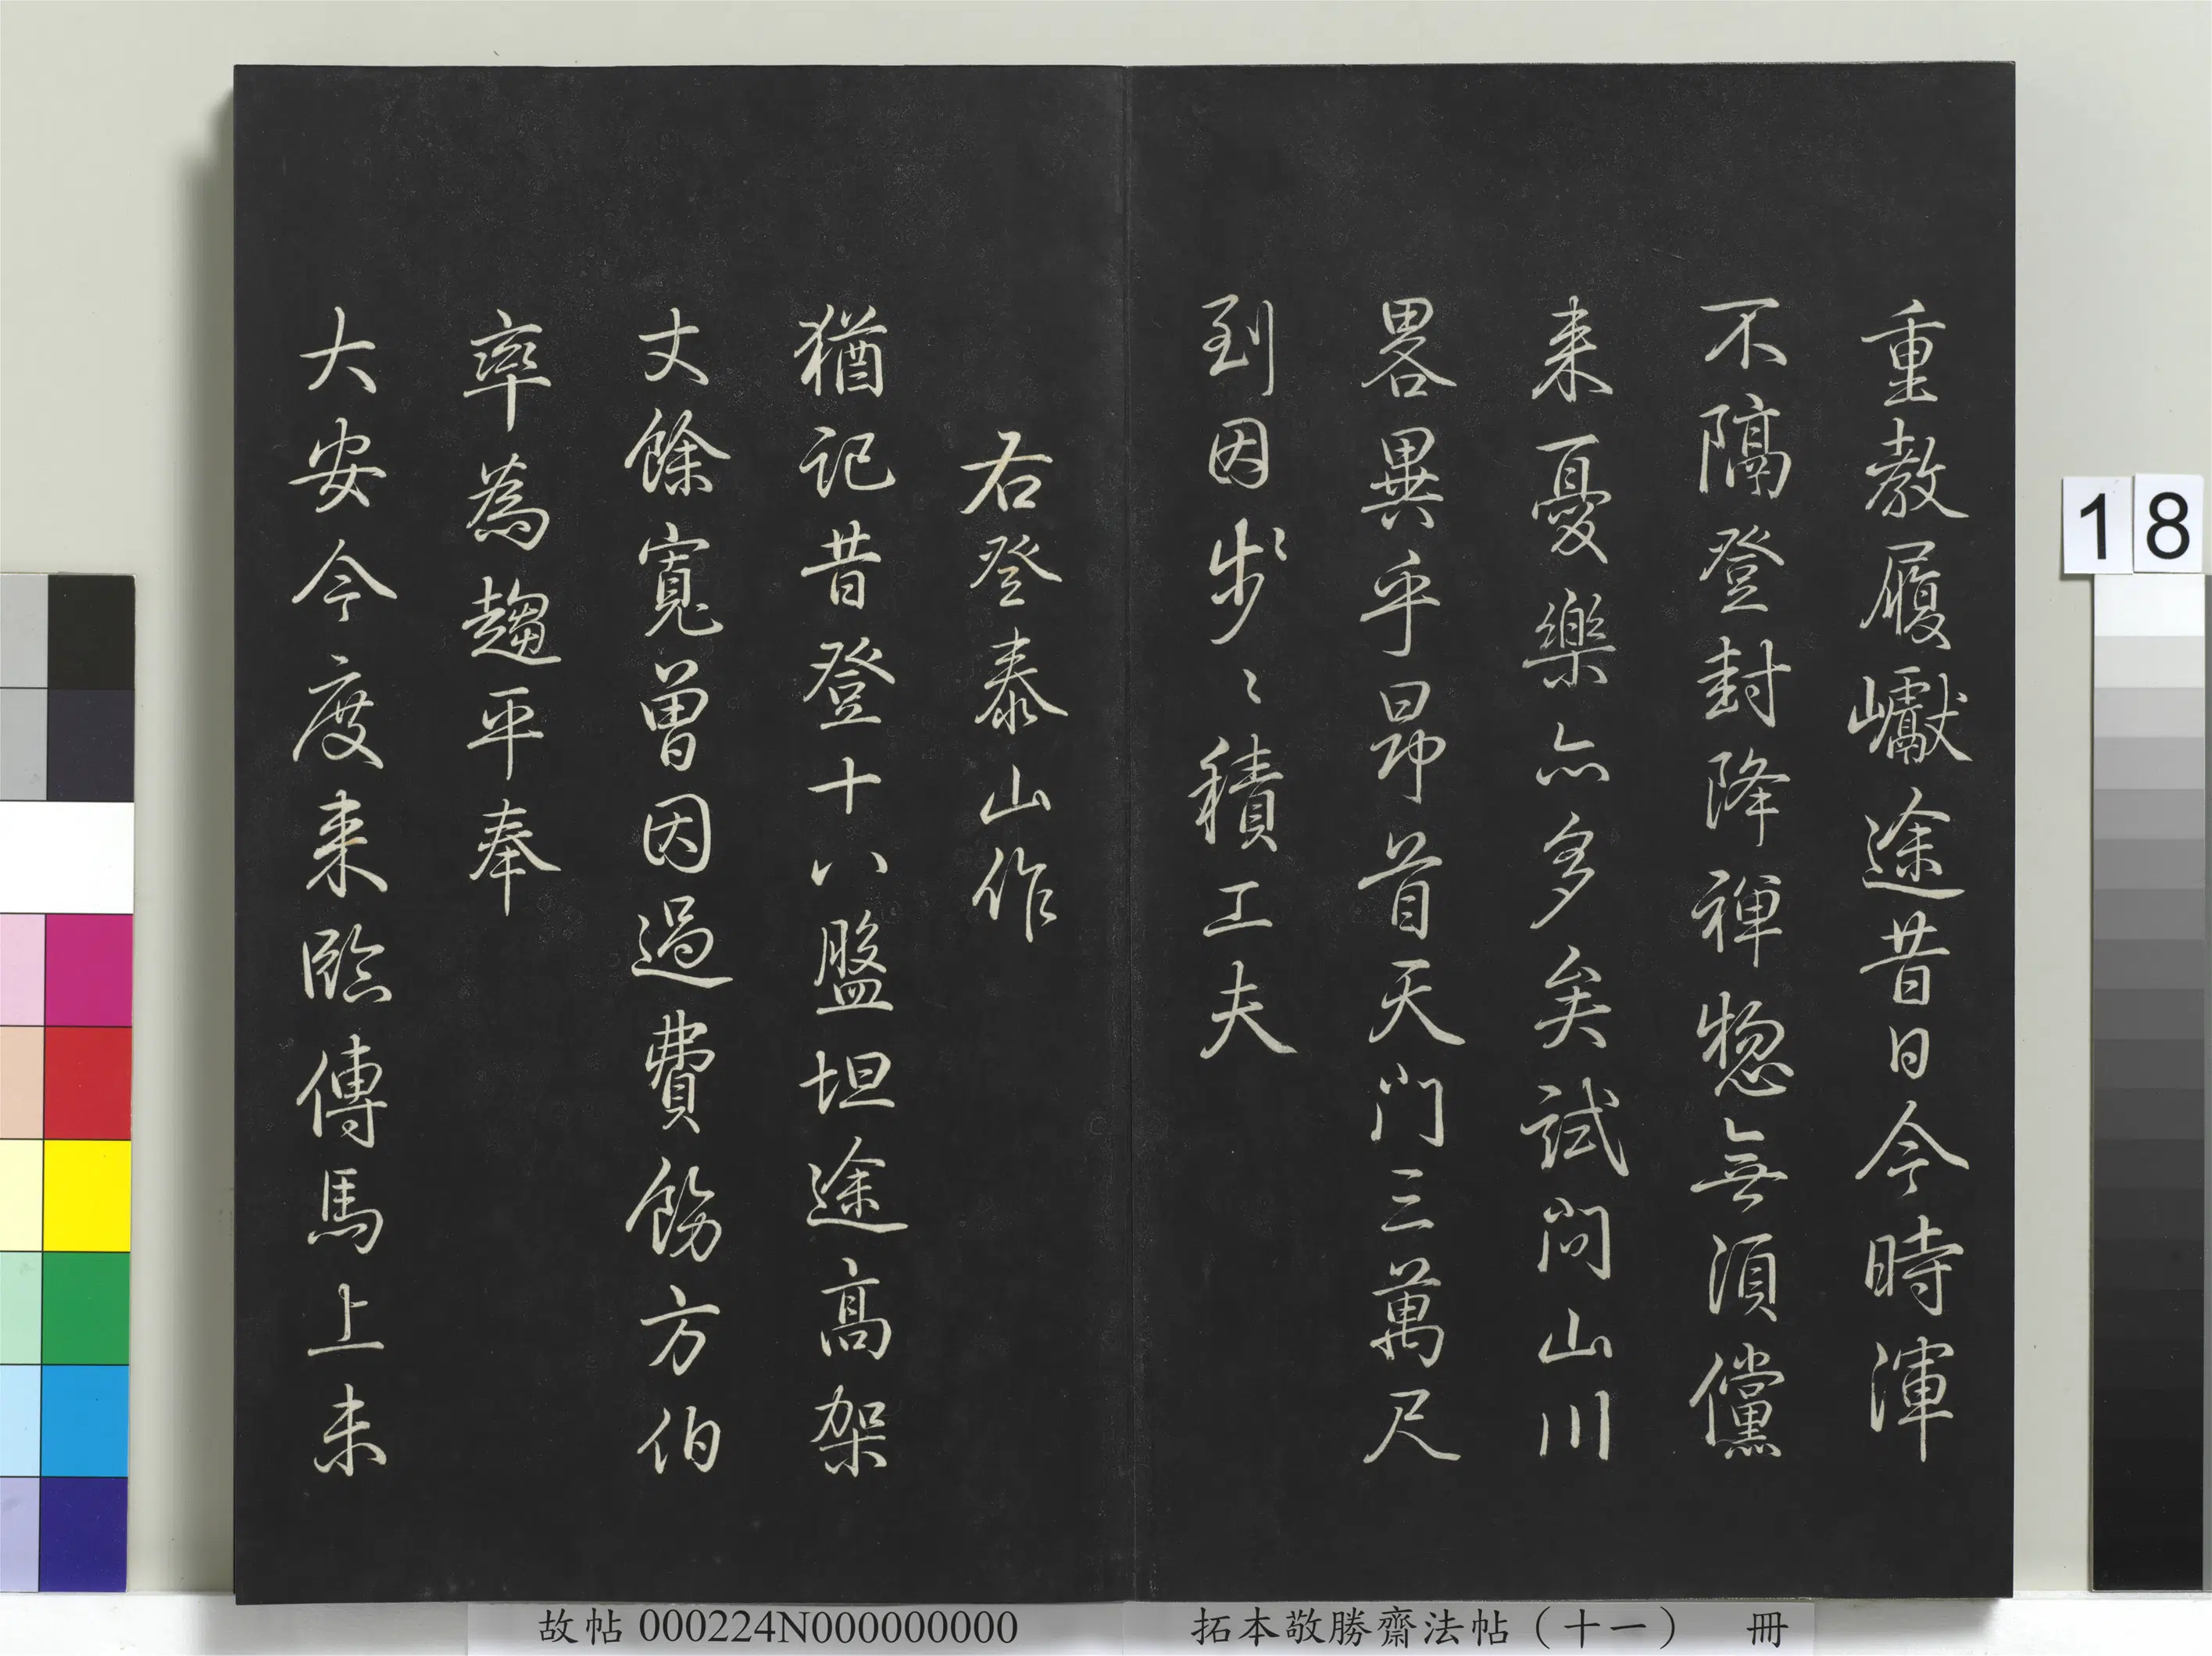 重教履巘途昔日今時渾
不隔登封降禅惣無須儻
来憂樂亦多矣試問山川
畧異乎昂首天門三萬尺
到因步〻積工夫
右登泰山作
猶記昔登十八盤坦途高架
丈餘寬曾因過費飭方伯
率為趨平奉
大安今度来臨傳馬上未
18
故帖 000224N000000000
拓本敬勝齋法帖（十一） 冊